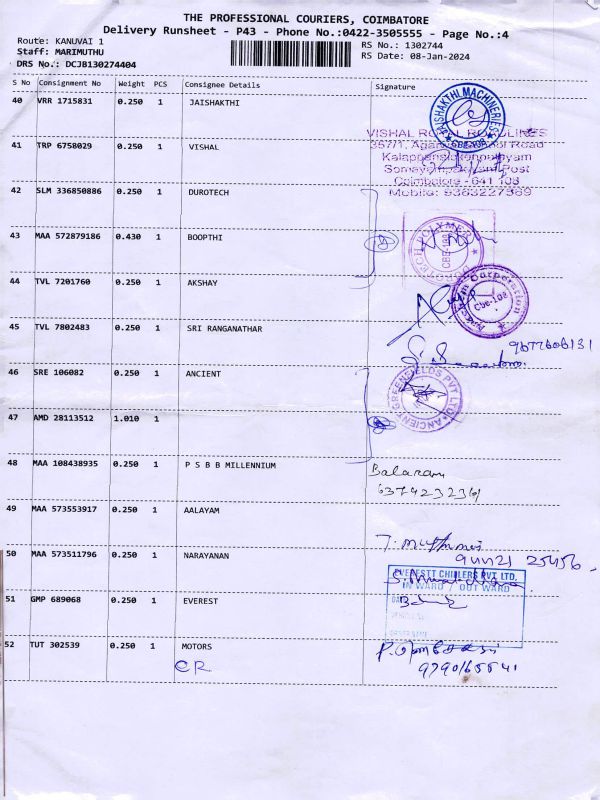 THE PROFESSIONAL COURIERS, COIMBATORE
Delivery Runsheet - P43 - Phone No.:0422-3505555 - Page No.:4
Route: KANUVAI 1
RS No.: 1302744
Staff: MARIMUTHU
RS Date: 08-Jan-2024
DRS No.: DCJB130274404
S No Consignment No Weight PCS Consignee Details Signature
40 VRR 1715831 0.250 1 JAISHAKTHI
VISHAL ROYAL ROADLINES
41 TRP 6758029 0.250 1 VISHAL
Somayampalayam Post
Coimbatore - 641 108
Mobile: 9363227569
42 SLM 336850886 0.250 1 DUROTECH
43 MAA 572879186 0.430 1 BOOPTHI
44 TVL 7201760 0.250 1 AKSHAY
45 TVL 7802483 0.250 1 SRI RANGANATHAR
9677606131
46 SRE 106082 0.250 1 ANCIENT
ANCIENT GREENFIELDS PVT LTD
47 AMD 28113512 1.010 1
48 MAA 108438935 0.250 1 P S B B MILLENNIUM
Balaram
49 MAA 573553917 0.250 1 AALAYAM
50 MAA 573511796 0.250 1 NARAYANAN
EVERESTT CHILLERS PVT. LTD.
IN WARD / OUT WARD
51 GMP 689068 0.250 1 EVEREST
52 TUT 302539 0.250 1 MOTORS
CR